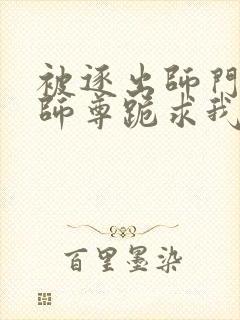 被逐出師門
師尊跪求我
百里墨染